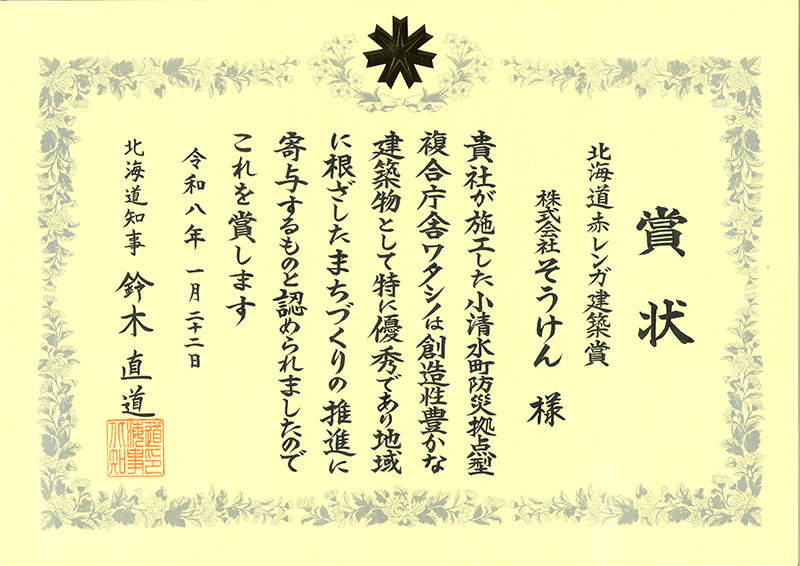 賞状
北海道赤レンガ建築賞
株式会社そうけん 様
貴社が施工した小清水町防災拠点型
複合庁舎ワタシノは創造性豊かな
建築物として特に優秀であり地域
に根ざしたまちづくりの推進に
寄与するものと認められましたので
これを賞します
令和八年一月二十二日
北海道知事 鈴木直道